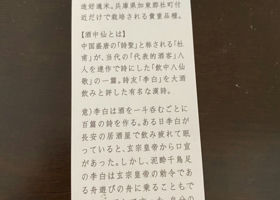 造好適米。兵庫県加東郡社町付
近だけで栽培される貴重品種。
【酒中仙とは】
中国盛唐の「詩聖」と称される「杜
甫」が、当代の「代表的酒客」八
人を連作で詩にした「飲中八仙
歌」の一篇。詩友「李白」を大酒
飲みと評した有名な漢詩。
意)李白は酒を一斗呑むごとに
百篇の詩を作る。ある日李白が
長安の居酒屋で飲み疲れて眠
っていると、玄宗皇帝から口宣
があった。しかし、泥酔千鳥足
の李白は玄宗皇帝の勅令であ
る舟遊びの舟に乗ることもで